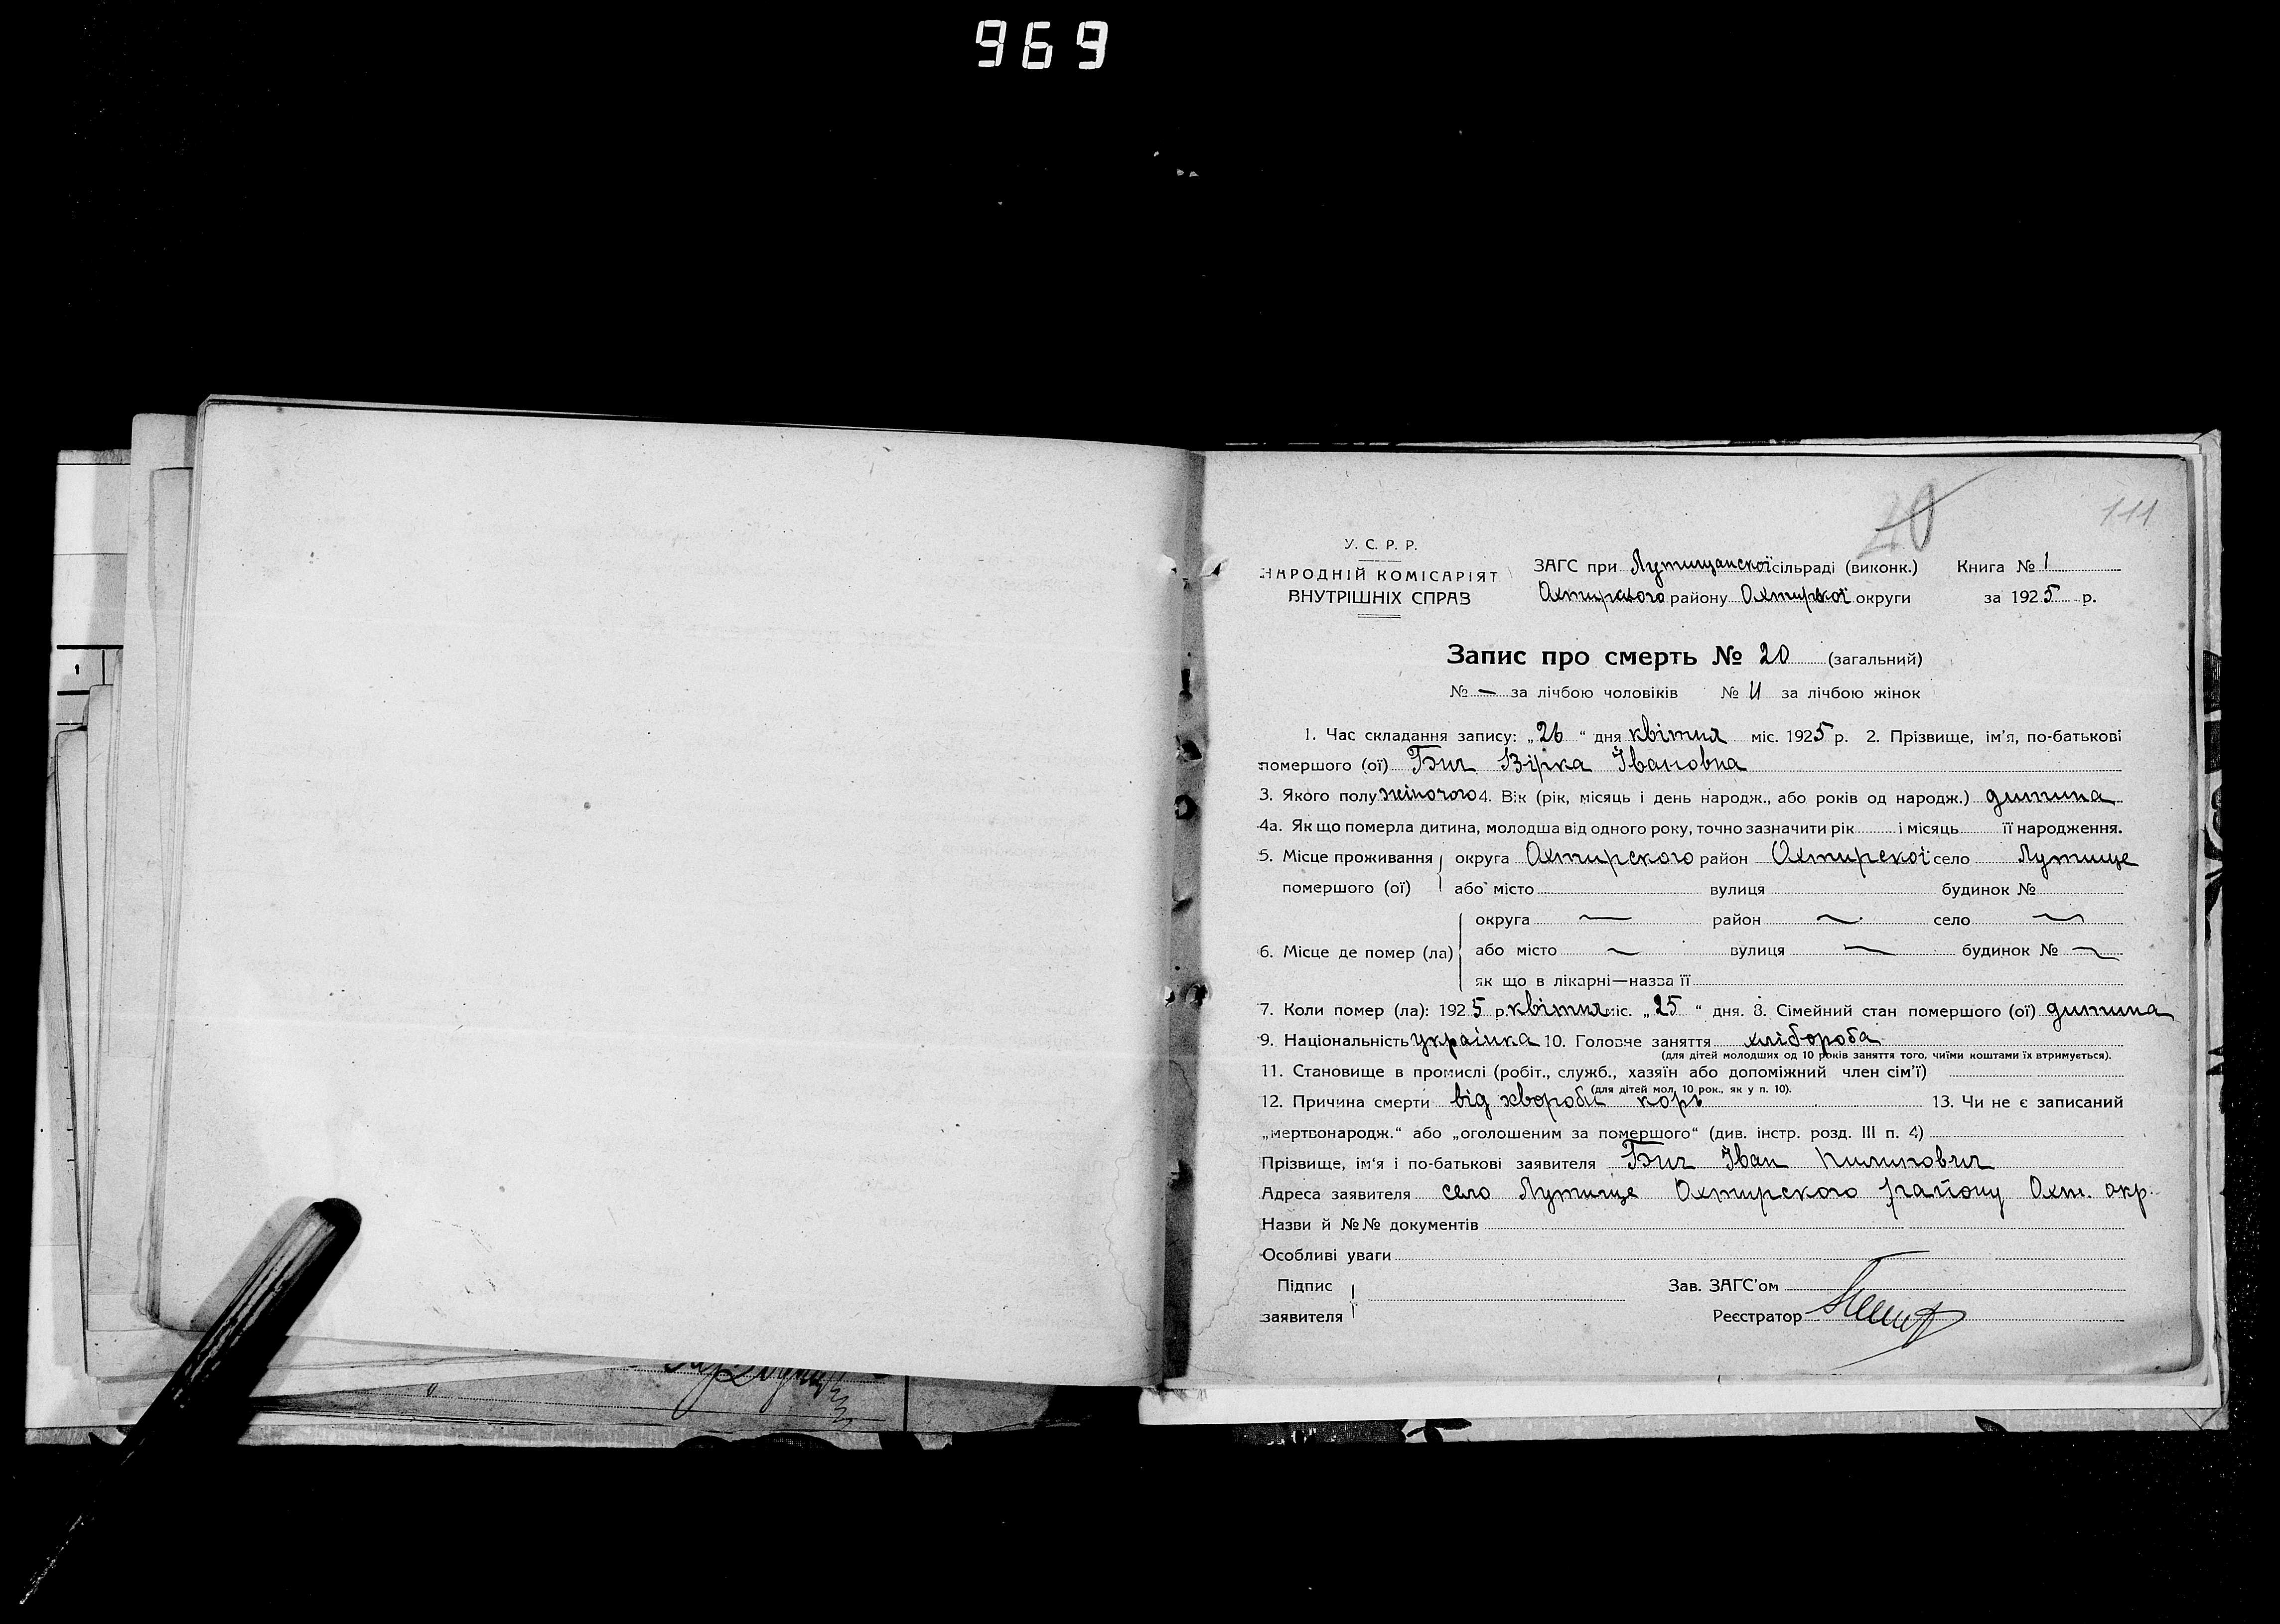 969
20
111
У. С. Р. Р.
НАРОДНІЙ КОМІСАРІЯТ
ВНУТРІШНІХ СПРАВ
ЗАГС при Лутищанскої сільраді (виконк.) Книга № 1
Охтирського району Охтирської округи за 1925 р.
Запис про смерть № 20 (загальний)
№ — за лічбою чоловіків № 11 за лічбою жінок
1. Час складання запису: „26“ дня квітня міс. 1925 р. 2. Прізвище, ім'я, по-батькові
помершого (ої) Бич Вірка Івановна
3. Якого полу жіночого 4. Вік (рік, місяць і день народж., або років од народж.) дитина
4а. Як що померла дитина, молодша від одного року, точно зазначити рік і місяць її народження.
5. Місце проживання округа Охтирского район Охтирскої село Лутище
помершого (ої) або місто вулиця будинок №
округа — район — село —
6. Місце де помер (ла) або місто — вулиця — будинок № —
як що в лікарні—назва її
7. Коли помер (ла): 1925 р. квітня міс. „25“ дня. 8. Сімейний стан помершого (ої) дитина
9. Національність українка 10. Головче заняття хлібороба
(для дітей молодших од 10 років заняття того, чиїми коштами їх втримується).
11. Становище в промислі (робіт., служб., хазяїн або допоміжний член сім'ї)
(для дітей мол. 10 рок., як у п. 10).
12. Причина смерти від хвороби корь 13. Чи не є записаний
„мертвонародж.“ або „оголошеним за помершого“ (див. інстр. розд. III п. 4)
Прізвище, ім'я і по-батькові заявителя Бич Іван
Адреса заявителя село Лутище Охтирского району Охт. окр.
Назви й №№ документів
Особливі уваги
Підпис Зав. ЗАГС'ом
заявителя Реєстратор